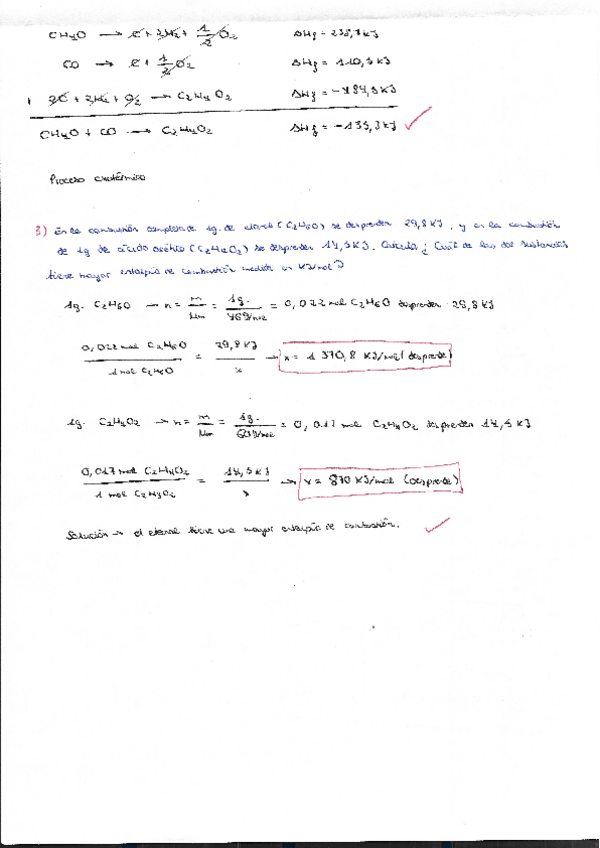 CH4O → C + 2H2 + 1/2 O2   ΔHf = 238,7 kJ
CO → C + 1/2 O2   ΔHf = 110,5 kJ
+ 2C + 2H2 + O2 → C2H4O2   ΔHf = -484,5 kJ
CH4O + CO → C2H4O2   ΔHf = -135,3 kJ ✓
Proceso exotérmico
3) En la combustión completa de 1g. de etanol (C2H6O) se desprenden 29,8 KJ, y en la combustión
de 1g de ácido acético (C2H4O2) se desprenden 14,5 KJ. Calcula ¿Cuál de las dos sustancias
tiene mayor entalpía de combustión medida en KJ/mol?
1g. C2H6O → n = m/Mm = 1g./46g/mol = 0,022 mol C2H6O desprenden 29,8 KJ
0,022 mol C2H6O / 1 mol C2H6O = 29,8 KJ / x → x = 1 370,8 KJ/mol (desprende)
1g. C2H4O2 → n = m/Mm = 1g./60g/mol = 0,017 mol C2H4O2 desprenden 14,5 KJ
0,017 mol C2H4O2 / 1 mol C2H4O2 = 14,5 KJ / x → x = 870 KJ/mol (desprende)
Solución → el etanol tiene una mayor entalpía de combustión. ✓